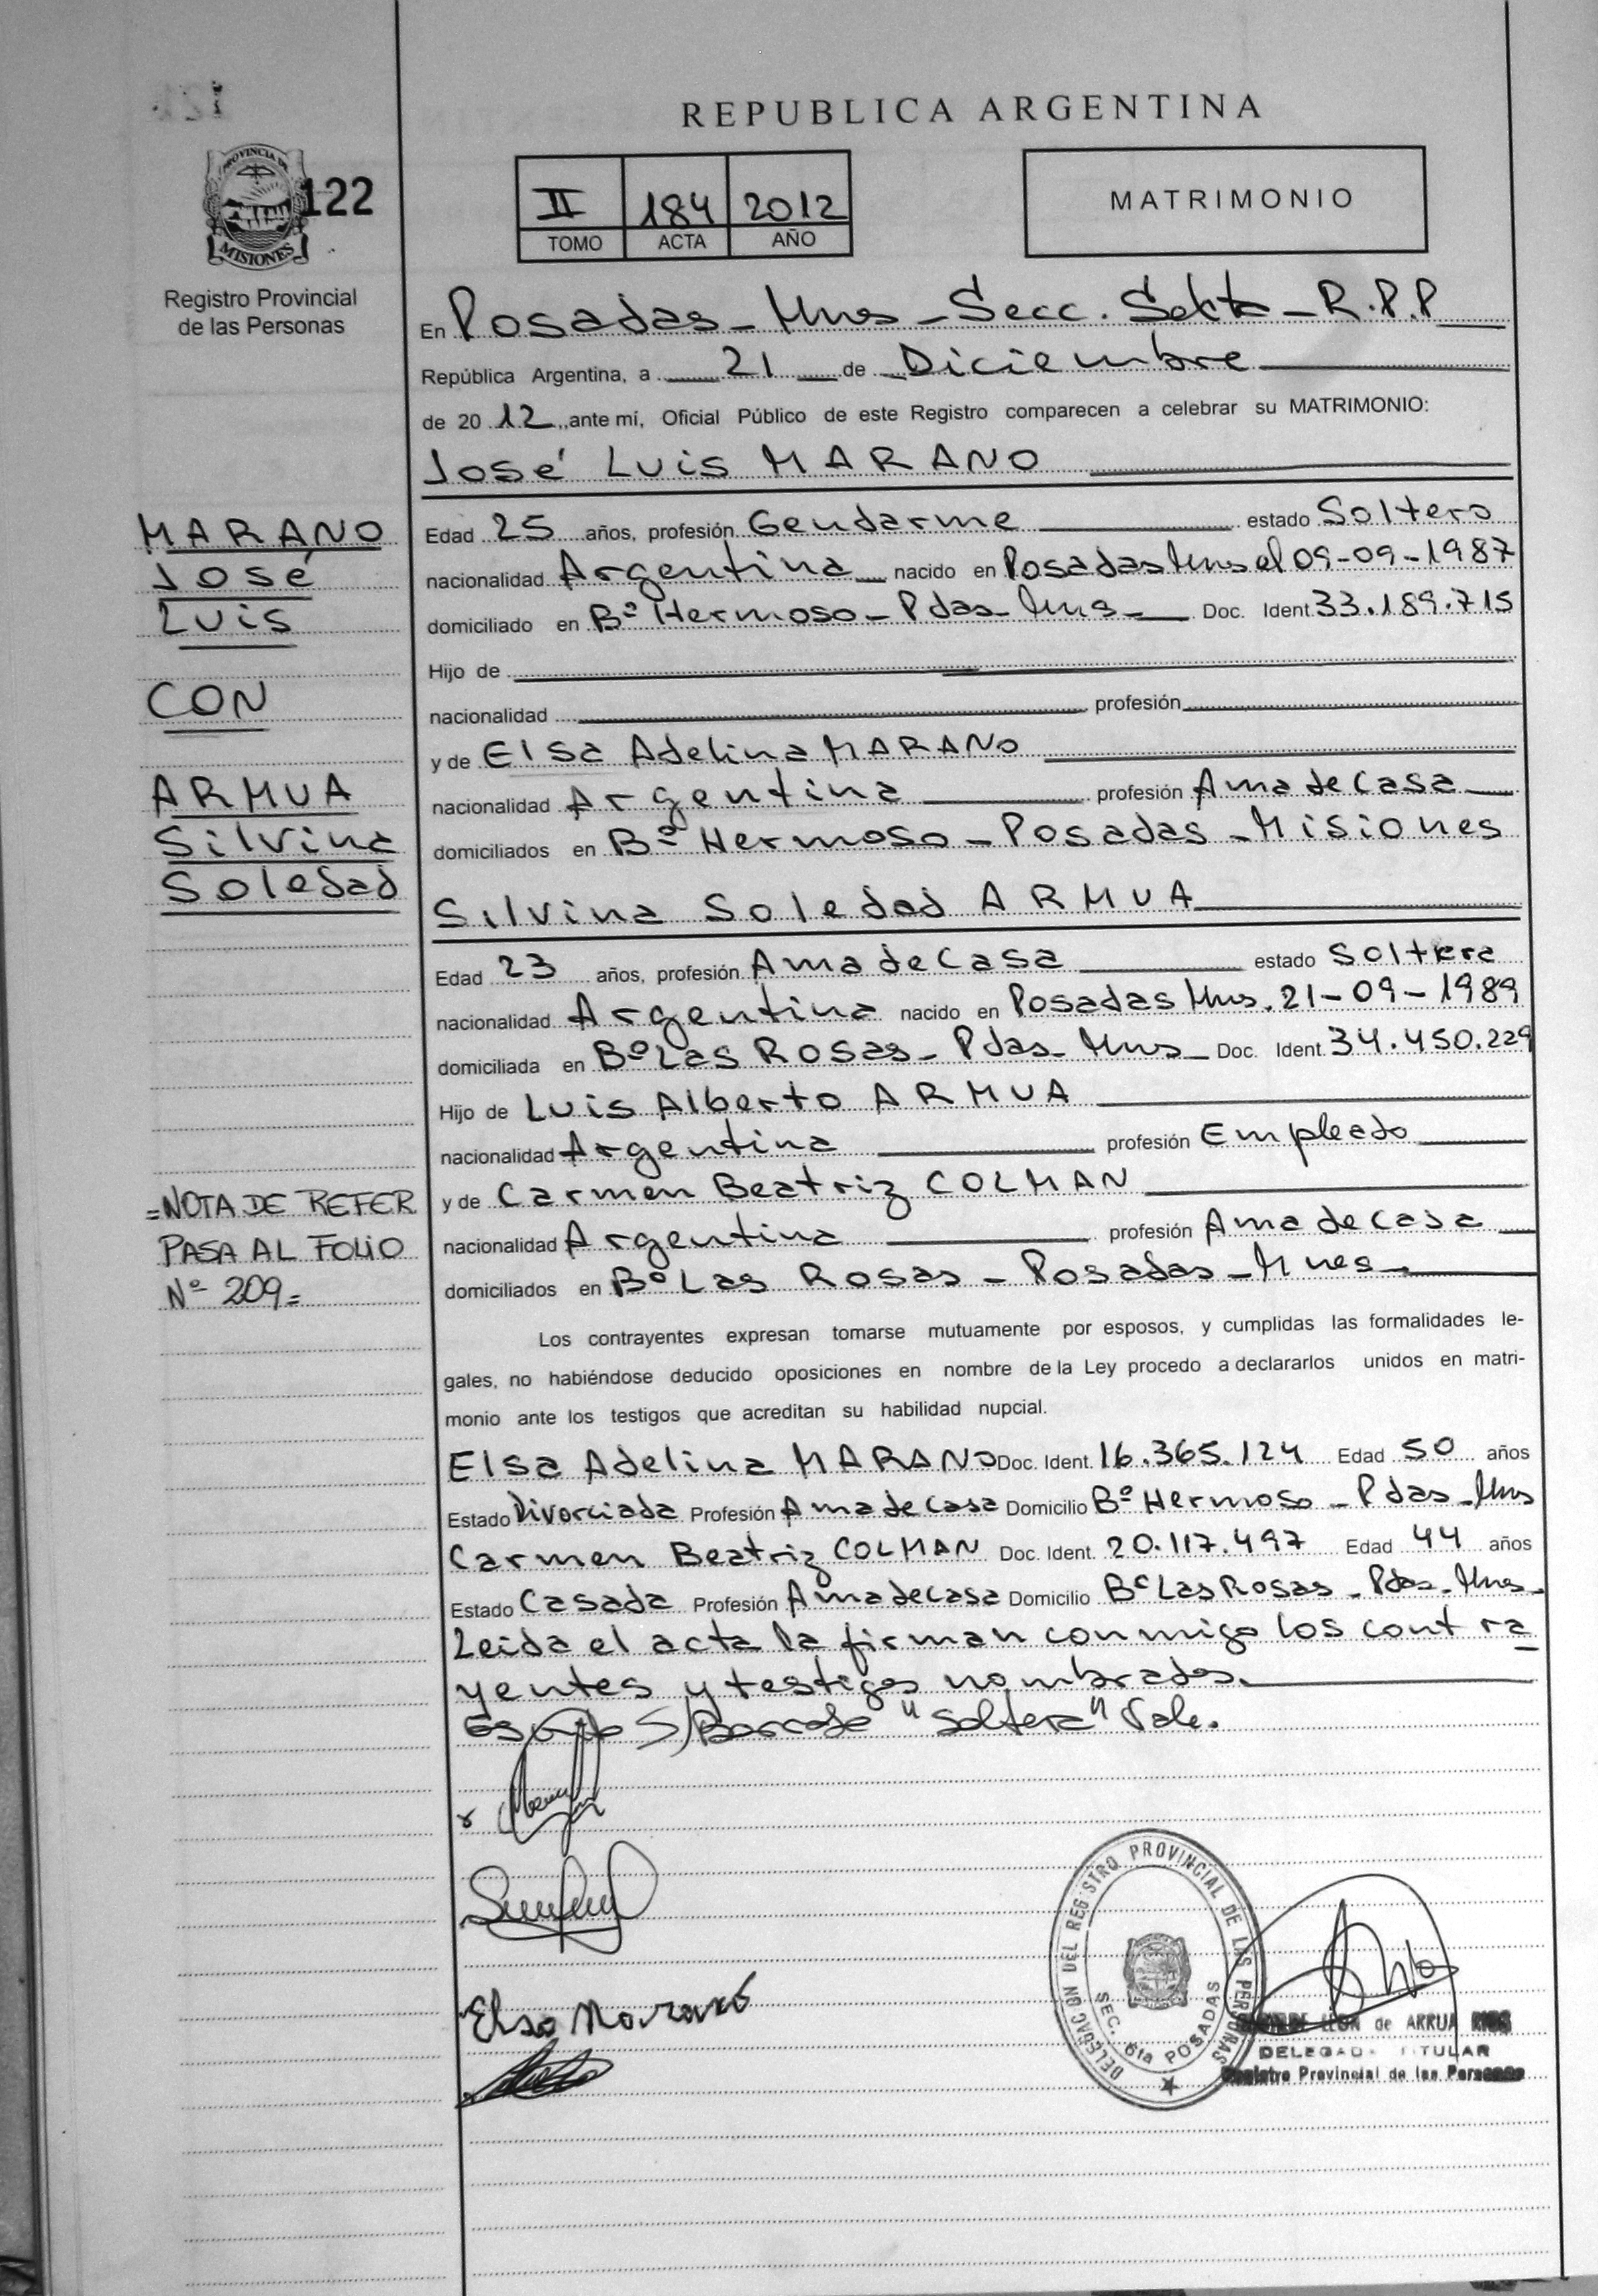 REPUBLICA ARGENTINA
PROVINCIA DE
MISIONES
122
Registro Provincial
de las Personas
II 184 2012
TOMO ACTA AÑO
MATRIMONIO
En Posadas - Mnes - Secc. Sexta - R.P.P
República Argentina, a 21 de Diciembre
de 2012, ante mí, Oficial Público de este Registro comparecen a celebrar su MATRIMONIO:
José Luis MARANO
MARANO
José
Luis
CON
ARMUA
Silvina
Soledad
Edad 25 años, profesión Gendarme estado Soltero
nacionalidad Argentina nacido en Posadas Mnes el 09-09-1987
domiciliado en Bº Hermoso - Pdas - Mns - Doc. Ident. 33.189.715
Hijo de
nacionalidad profesión
y de Elsa Adelina MARANO
nacionalidad Argentina profesión Ama de Casa
domiciliados en Bº Hermoso - Posadas - Misiones
Silvina Soledad ARMUA
Edad 23 años, profesión Ama de Casa estado Soltera
nacionalidad Argentina nacido en Posadas Mns. 21-09-1989
domiciliada en Bº Las Rosas - Pdas - Mns - Doc. Ident. 34.450.229
Hijo de Luis Alberto ARMUA
nacionalidad Argentina profesión Empleado
y de Carmen Beatriz COLMAN
nacionalidad Argentina profesión Ama de Casa
domiciliados en Bº Las Rosas - Posadas - Mnes -
=NOTA DE REFER
PASA AL FOLIO
Nº 209=
Los contrayentes expresan tomarse mutuamente por esposos, y cumplidas las formalidades le-
gales, no habiéndose deducido oposiciones en nombre de la Ley procedo a declararlos unidos en matri-
monio ante los testigos que acreditan su habilidad nupcial.
Elsa Adelina MARANO Doc. Ident. 16.365.124 Edad 50 años
Estado Divorciada Profesión Ama de Casa Domicilio Bº Hermoso - Pdas - Mns
Carmen Beatriz COLMAN Doc. Ident. 20.117.497 Edad 44 años
Estado Casada Profesión Ama de Casa Domicilio Bº Las Rosas - Pdas - Mns -
Leida el acta la firman conmigo los contra
yentes y testigos nombrados.
"Soltera" Vale.
Elsa Marano
DELEGACION DEL REGISTRO PROVINCIAL DE LAS PERSONAS
SEC. 6ta POSADAS
LEON de ARRUA
DELEGADA TITULAR
Registro Provincial de las Personas